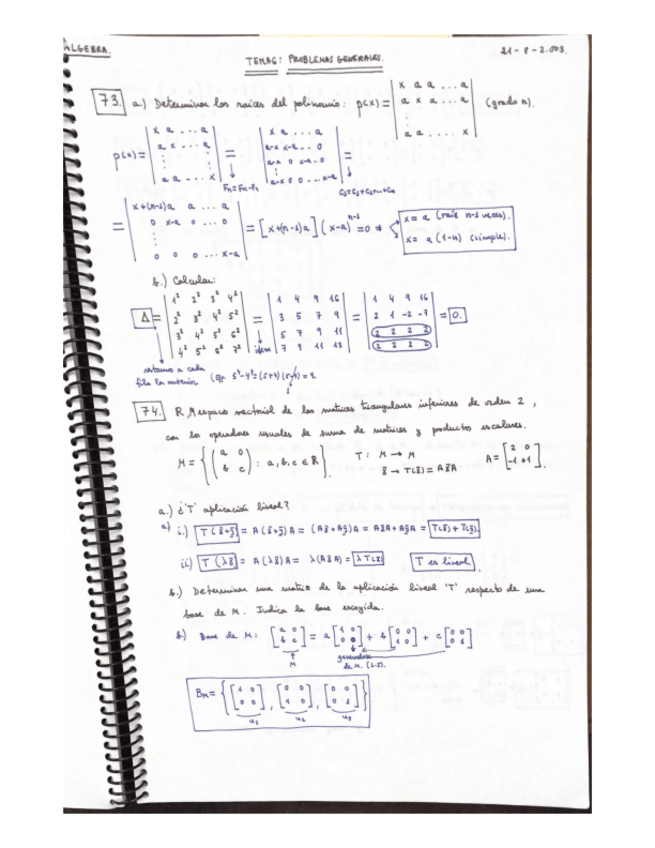 ALGEBRA.
21-8-2.003.
TEMAS: PROBLEMAS GENERALES.
73. a.) Determinar las raíces del polinomio: p(x) = | x a a ... a | (grado n).
| a x a ... a |
| a a ... x |
p(x) = | x a ... a | = | x a ... a | =
| a x ... a | | a-x x-a ... 0 |
| a-x 0 x-a ... 0 |
| a a ... x | | a-x 0 0 ... x-a |
Fn = Fn - F1
C1 = C1 + C2 + ... + Cn
= | x+(n-1)a a ... a | = [x+(n-1)a] (x-a)^(n-1) = 0 ⇒ x = a (raíz n-1 veces).
| 0 x-a 0 ... 0 | x = a (1-n) (simple).
| 0 0 0 ... x-a |
b.) Calcular:
Δ = | 1² 2² 3² 4² | = | 1 4 9 16 | = | 1 4 9 16 | = 0.
| 2² 3² 4² 5² | | 3 5 7 9 | | 2 1 -2 -7 |
| 3² 4² 5² 6² | | 5 7 9 11 | | 2 2 2 2 |
| 4² 5² 6² 7² | | 7 9 11 13 | | 2 2 2 2 |
idem
restamos a cada
fila la anterior (Ej. 5²-4² = (5+4)(5-4) = 9.
1
74. R M espacio vectorial de las matrices triangulares inferiores de orden 2,
con las operaciones usuales de suma de matrices y producto escalares.
M = { ( a 0 ) : a, b, c ∈ R } . T: M → M A = [ 2 0 ] .
( b c ) X → T(X) = AXA [ -1 +1 ]
a.) ¿'T' aplicación lineal?
a) i.) T(X+Y) = A(X+Y)A = (AX+AY)A = AXA+AYA = T(X)+T(Y).
ii) T(λX) = A(λX)A = λ(AXA) = λT(X) T es lineal.
b.) Determinar una matriz de la aplicación lineal 'T' respecto de una
base de M. Indica la base escogida.
b) Base de M: [ a 0 ] = a [ 1 0 ] + b [ 0 0 ] + c [ 0 0 ]
[ b c ] [ 0 0 ] [ 1 0 ] [ 0 1 ]
M
generadores
de M. (L.I).
B_M = { [ 1 0 ] , [ 0 0 ] , [ 0 0 ] }
[ 0 0 ] [ 1 0 ] [ 0 1 ]
u₁ u₂ u₃